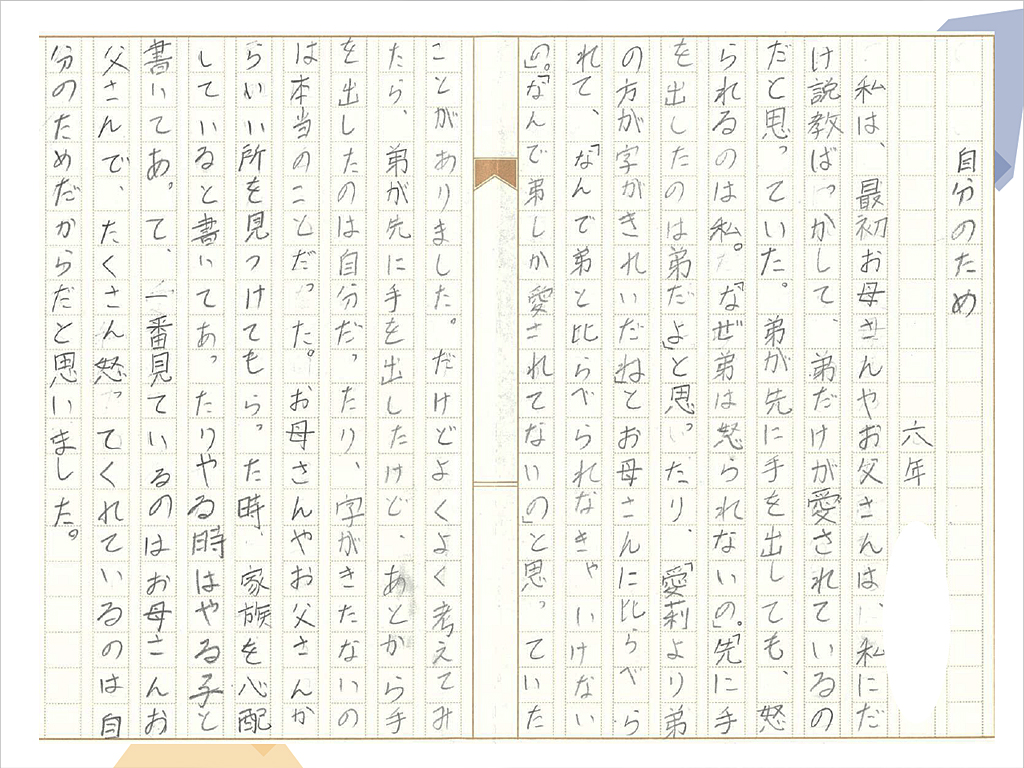 自分のため
六年
私は、最初お母さんやお父さんは、私にだ
け説教ばっかして、弟だけが愛されているの
だと思っていた。弟が先に手を出しても、怒
られるのは私。「なぜ弟は怒られないの。」「先に手
を出したのは弟だよ」と思ったり、「愛莉より弟
の方が字がきれいだね」とお母さんに比らべら
れて、「なんで弟と比らべられなきゃいけない
の。」「なんで弟しか愛されてないの」と思っていた
ことがありました。だけどよくよく考えてみ
たら、弟が先に手を出したけど、あとから手
を出したのは自分だったり、字がきたないの
は本当のことだった。お母さんやお父さんか
らいい所を見つけてもらった時、家族を心配
していると書いてあったりやる時はやる子と
書いてあって、一番見ているのはお母さんお
父さんで、たくさん怒ってくれているのは自
分のためだからだと思いました。